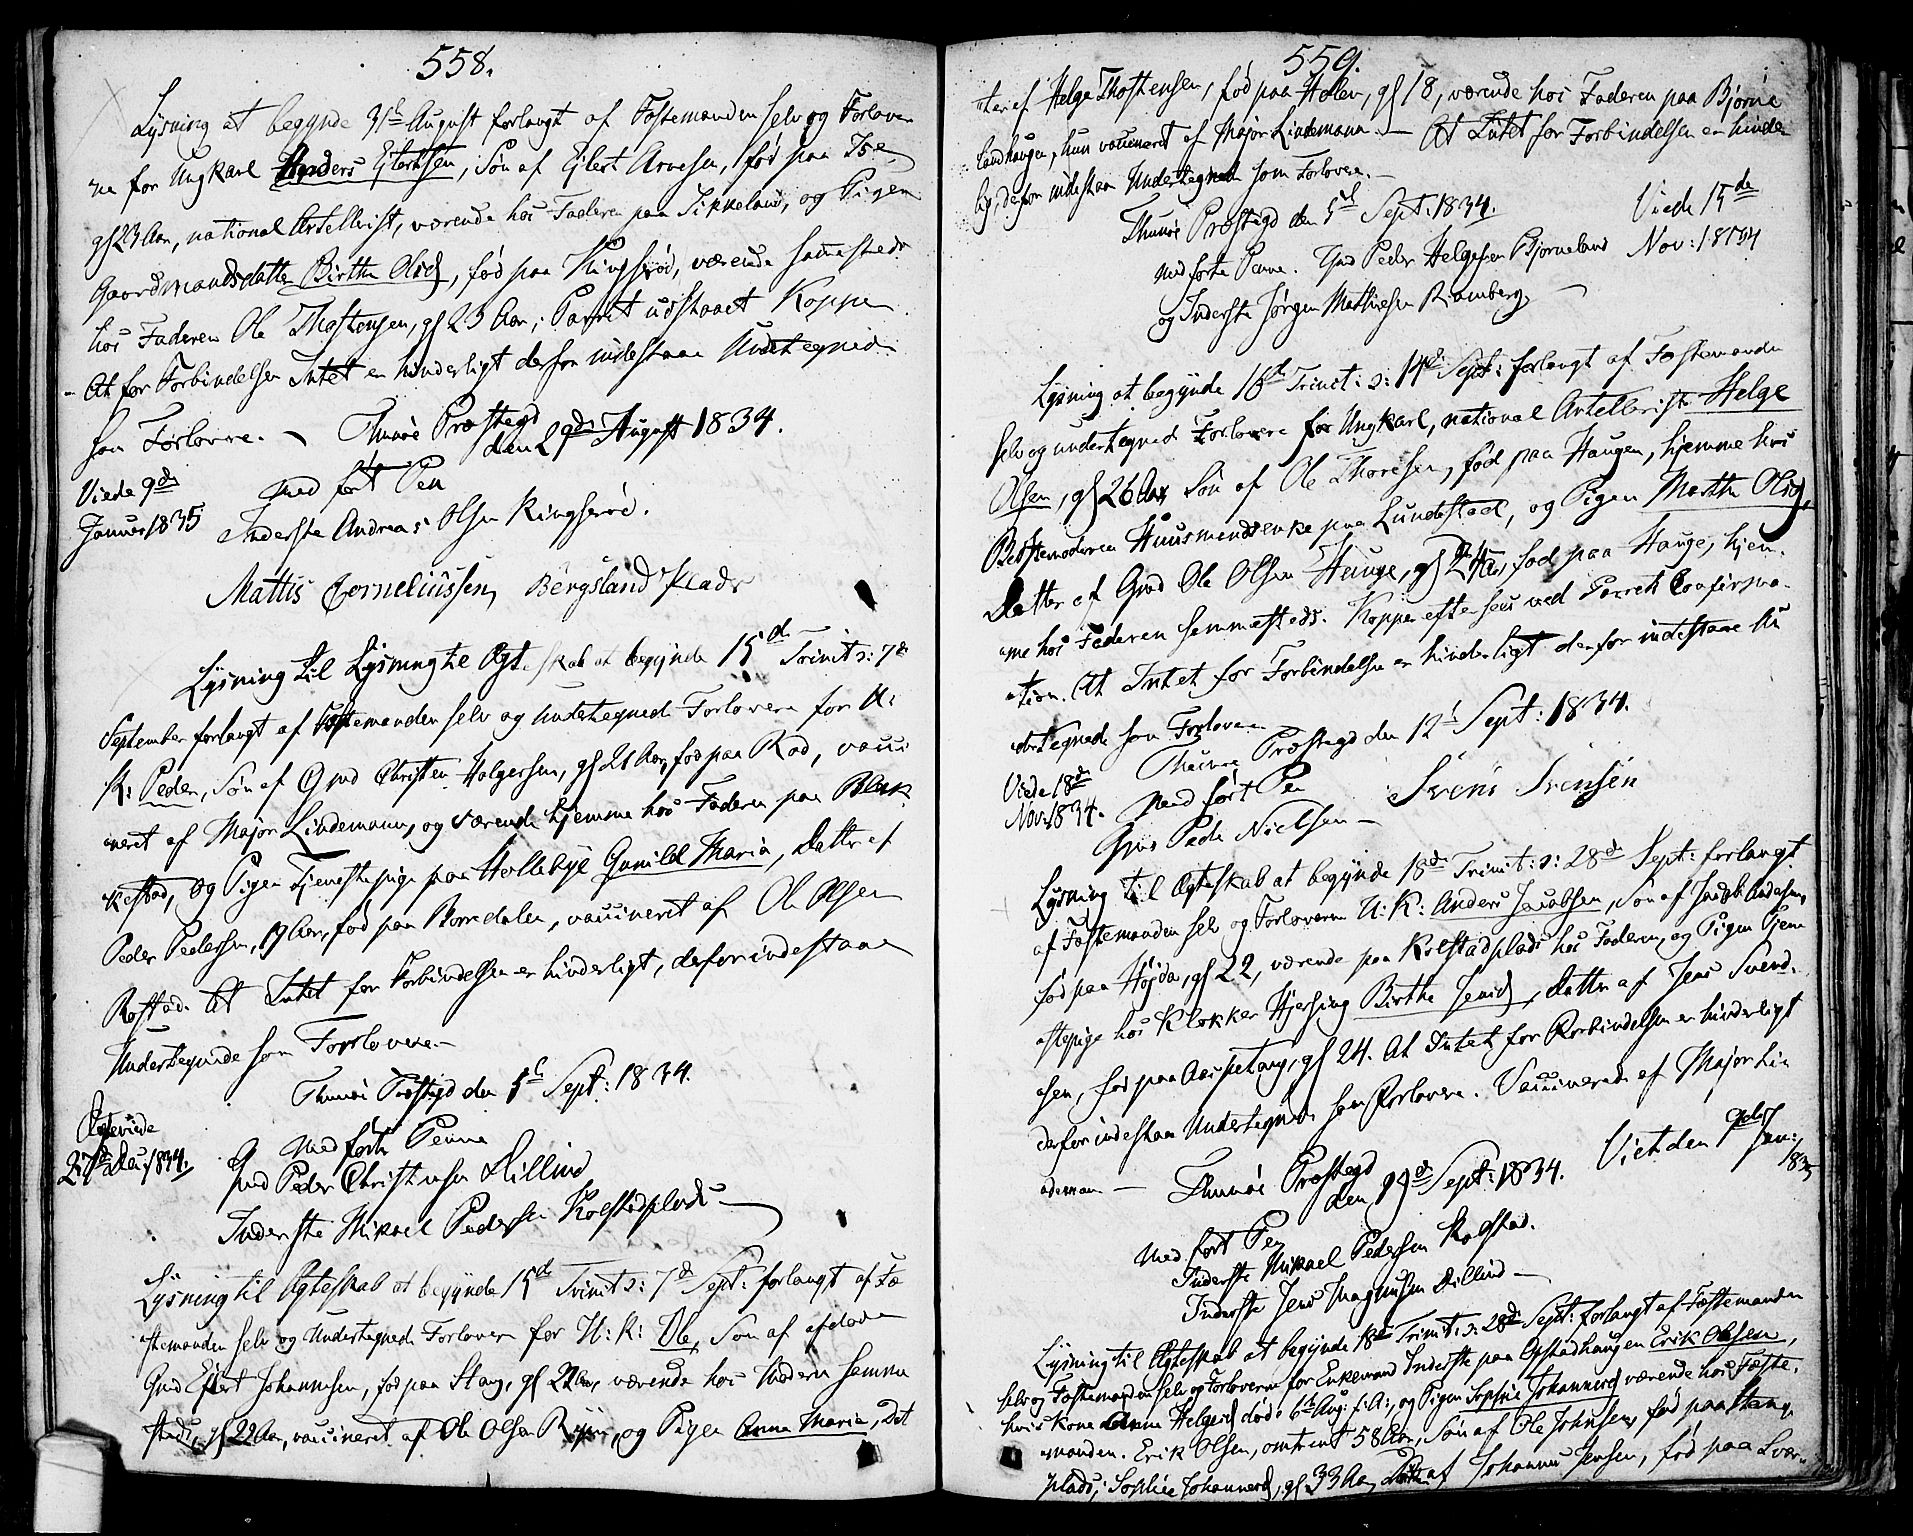 558.
Lysning at begynde 31t August forlangt af Fæstemanden selv og Forlover
ne for Ungkarl Anders Ejlertsen, Søn af Ejlert Arvesen, fød paa
gl 23 Aar, national Artellerist, værende hos Faderen paa Sikkeland, og Pigen
Gaardmandsdatter Birthe Olsd, fød paa Ringserød, værende sammesteds
hos Faderen Ole Thostensen, gl 23 Aar; Parret udstaaet Kopper
- At for Forbindelsen Intet er hinderligt derfor indestaae Undertegnede
som Forlovere. - Thunøe Præstegd
den 29de August 1834.
Viede 9de
Januar 1835
med ført Pen
Inderste Andreas Olsen Ringserød.
Mattis Corneliussen, Bergsland Plads
Lysning til Lysning til Ægteskab at begynde 15de Trinit: 7de
September forlangt af Fæstemanden selv og Undertegnede Forlovere for U:
K: Peder, Søn af Gmd Christen Holgersen, gl 21 Aar, fød paa Rød, vacci
neret af Major Lindemann, og værende hjemme hos Faderen paa Blak
kestad, og Pigen Tjenestepige paa Hollebye Gunild Maria, Datter af
Peder Pedersen, 19 Aar, fød paa Borredalen, vaccineret af Ole Olsen
Rostad. At Intet for Forbindelsen er hinderligt, derfor indestaae
Undertegnede som Forlovere. -
Thunøe Præstegd den 5t Sept: 1834.
viede
27de 1834.
Med førte Penne
Gmd Peder Christensen Dillind
Inderste Mikael Pedersen Kolstadplads -
Lysning til Ægteskab at begynde 15de Trinit: 7de Sept: forlangt af Fæ
stemanden selv og Undertegnede Forlovere for U: K: Ole, Søn af afdøde
Gmd Ejlert Johannesen, fød paa Stang, gl 22 Aar, værende hos Moderen samme
steds, gl 22 Aar, vaccineret af Ole Olsen og Pigen Anna Maria, Dat
559.
ter af Helge Thostensen, fød paa Holen, gl 18, værende hos Faderen paa Bjørne
landhaugen, hun vaccineret af Major Lindemann. - At Intet for Forbindelsen er hinder
lig, derfor indestaae Undertegnede som Forlovere. -
Thunøe Præstegd den 5t Sept: 1834.
Viede 15de
Nov: 1834
Med førte Penne. Gmd Peder Helgesen Bjørneland
og Inderste Jørgen Mathiesen Ramberg -
Lysning at begynde 16de Trinit: 14de Sept: forlangt af Fæstemanden
selv og undertegnede Forlovere for Ungkarl, national Artellerist Helge
Olsen, gl 26 Aar, Søn af Ole Thoresen, fød paa Haugen, hjemme hos
Bedstemoderen Huusmandsenke paa Lundestad, og Pigen Marthe Olsd,
Datter af Gmd Ole Olsen Hauge, gl 24 Aar, fød paa Hauge, hjem
me hos Faderen sammesteds. Kopper efter sees ved Parrets Confirma
tion. At Intet for Forbindelsen er hinderligt derfor indestaae Un
dertegnede som Forlovere
Thunøe Præstegd den 12t Sept: 1834.
Viede 18de
Nov: 1834.
Med ført Pen
Svens Svensen
Gmd Peder Nielsen -
Lysning til Ægteskab at begynde 18de Trinit: 28de Sept: forlangt
af Fæstemanden selv og Forloverne U: K: Anders Jacobsen, Søn af Jacob Andersen,
fød paa Højda, gl 22, værende paa Kolstadplads hos Faderen, og Pigen Tjene
stepige hos Klokker Hjersing Birthe Jensd, Datter af Jens Svend
sen, fød paa Aaspetang, gl 24. At Intet for Forbindelsen er hinderligt
derfor indestaae Undertegnede som Forlovere. Vaccinerede af Major Lin
demann - Thunøe Præstegd
den 19de Sept: 1834.
Viet den 9de Jan:
1835
Med ført Pen
Inderste Mikael Pedersen Kolstad.
Inderste Jens Magnusen Dillind -
Lysning til Ægteskab at begynde 18de Trinit: 28de Sept: forlangt af Fæstemanden
selv og Fæstemanden selv og Forloverne for Enkemand Inderste paa Opstadhaugen Erik Olsen,
hvis Kone Anne Helgesd døde 6te Aug: f. A:, og Pigen Sophie Johannesd værende hos Fæste
manden. Erik Olsen, omtrent 58 Aar, Søn af Ole Johnsen, fød paa Stang
plads; Sophie Johannesd, gl 33 Aar, Datter af Johannes Jensen, fød paa Svær